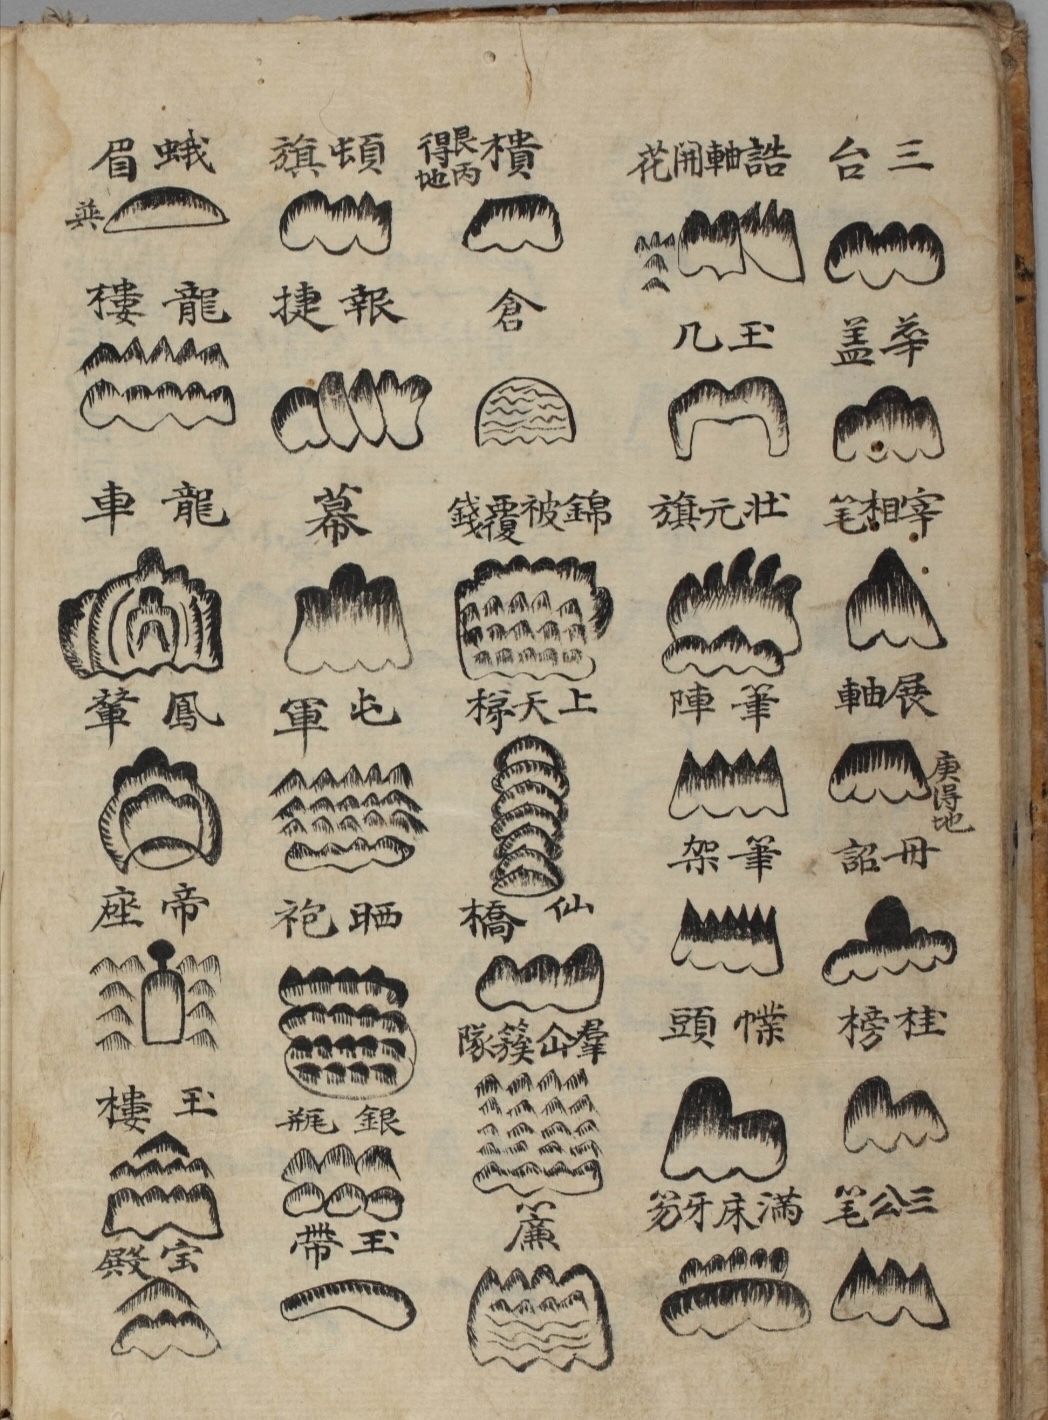 三台
華盖
宰相笔
展軸
庚得地
冊詔
桂榜
三公笔
誥軸開花
玉几
壮元旗
筆陣
筆架
幞頭
滿床牙笏
樻
艮丙得地
倉
錦被覆錢
上天梯
仙橋
羣仚簇隊
簾
頓旗
報捷
幕
屯軍
晒袍
銀瓶
玉帶
蛾眉
龍樓
龍車
鳳輦
帝座
玉樓
宝殿